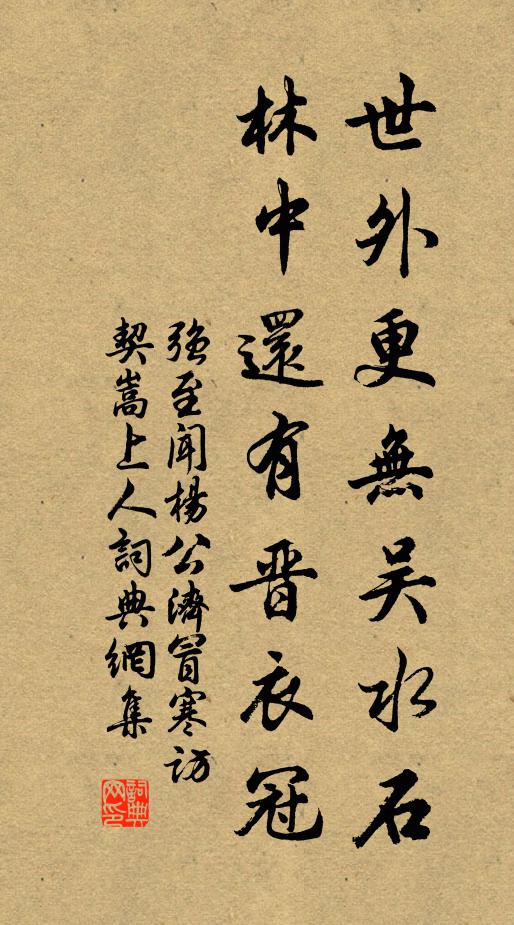 世外更無吴水石
林中還有晋衣冠
強至闻楊公濟冒寒访
契嵩上人詞典網集
詞典网印